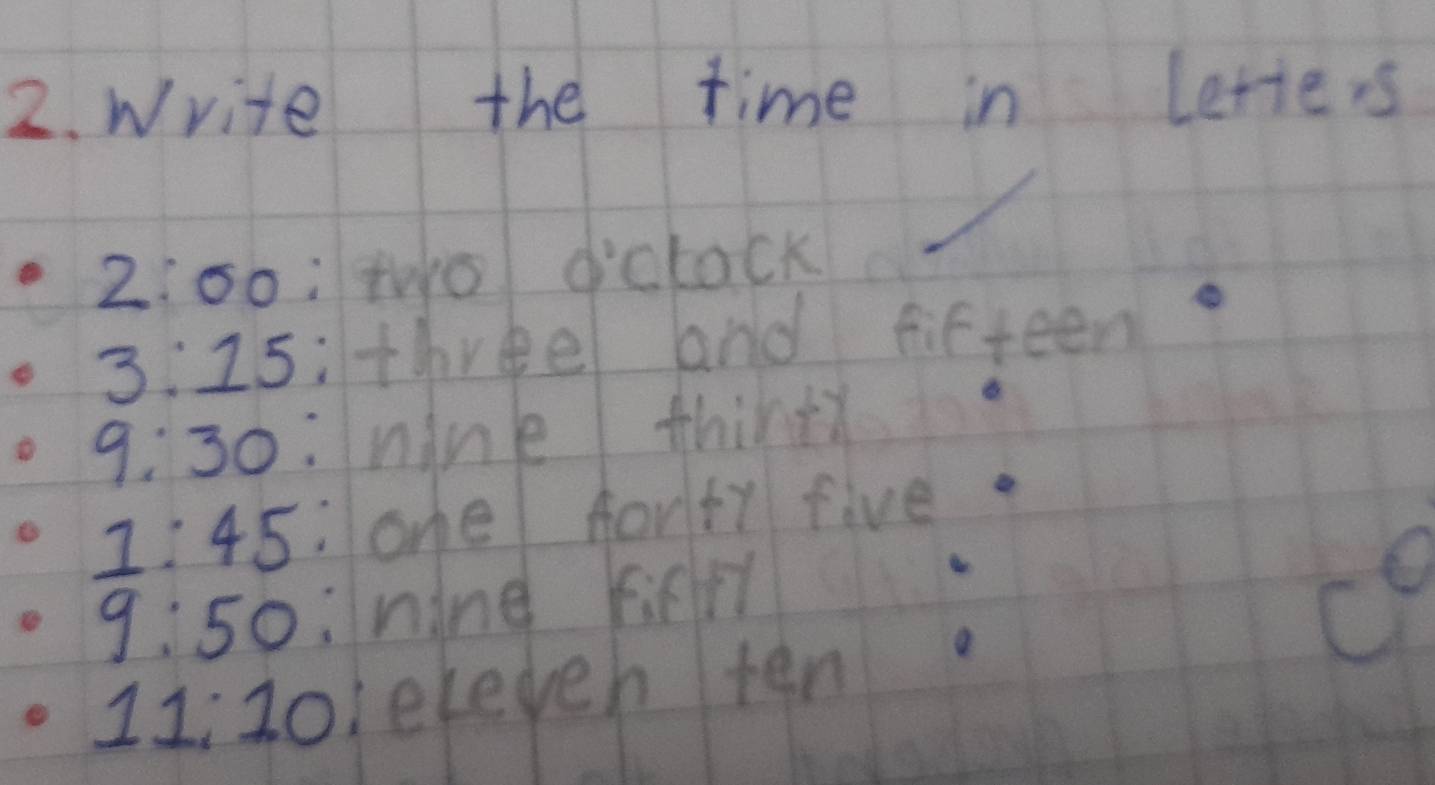 2. Write the time in letters
• 2:00: two o'clock
• 3:15: three and fifteen
• 9:30: nine thirty
• 1:45: one forty five
• 9:50: nine fifty
• 11:10: eleven ten